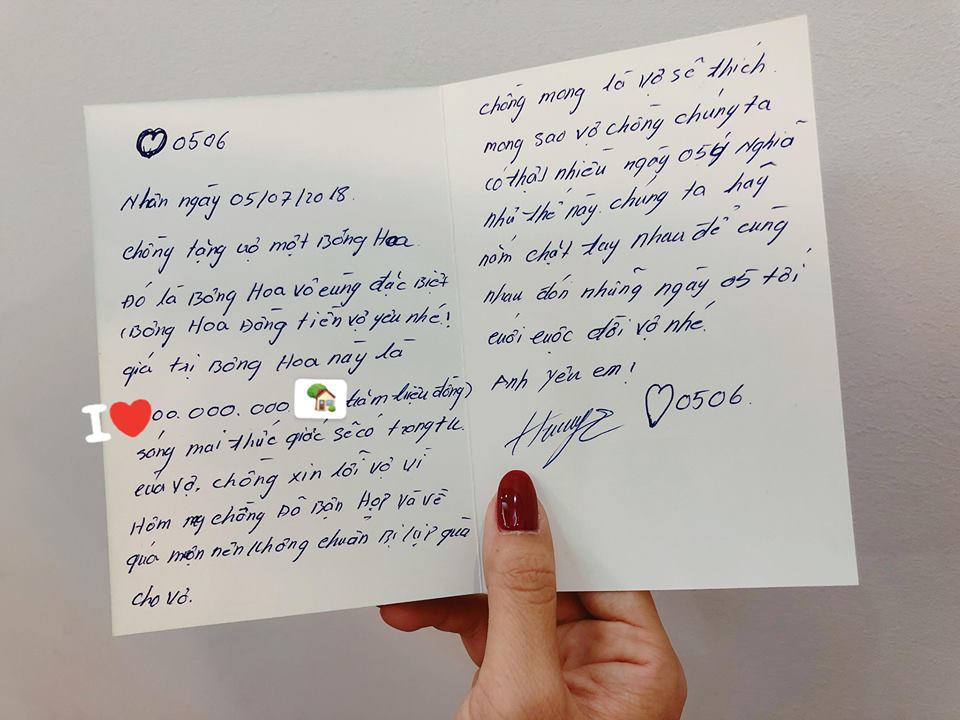 0506
Nhân ngày 05/07/2018.
chồng tặng vợ một Bông Hoa.
Đó là Bông Hoa vô cùng đặc Biệt
(Bông Hoa Đồng tiền vợ yêu nhé!
giá trị Bông Hoa này là
I 00.000.000 trăm triệu đồng)
sáng mai thức giấc sẽ có trong tk
của vợ. chồng xin lỗi vợ vì
Hôm nay chồng Đã Bận Họp và về
quá muộn nên không chuẩn Bị kịp quà
cho vợ.
chồng mong là vợ sẽ thích.
mong sao vợ chồng chúng ta
có thật nhiều ngày 05 ý Nghĩa
như thế này. chúng ta hãy
nắm chặt tay nhau để cùng
nhau đón những ngày 05 tới
cuối cuộc đời vợ nhé.
Anh yêu em!
0506